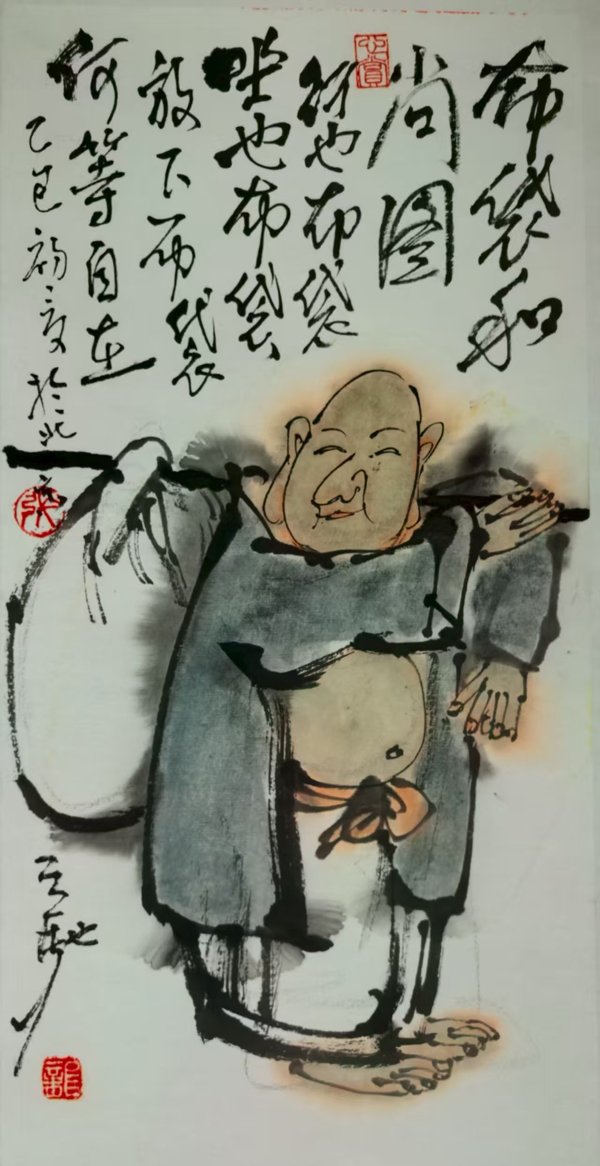 布袋和
尚图
行也布袋
坐也布袋
放下布袋
何等自在
乙巳